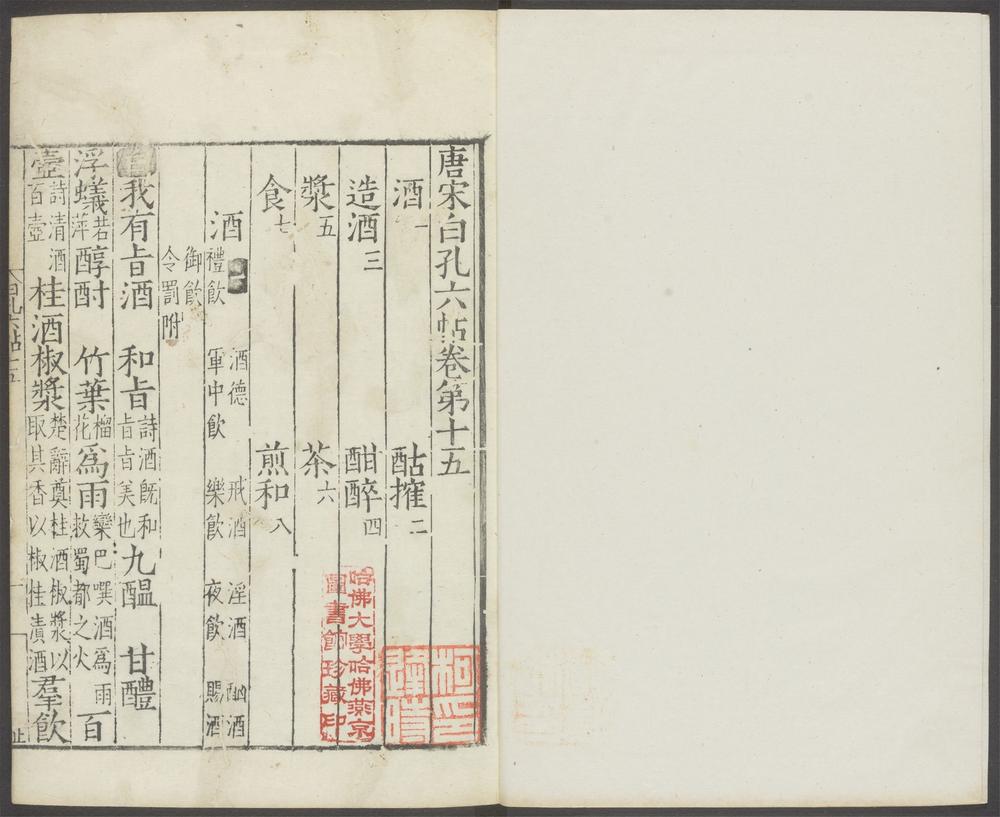 唐宋白孔六帖卷第十五
酒一 酤搉二
造酒三 酣醉四
漿五 茶六
食七 煎和八
酒 禮飲 酒德 軍中飲 戒酒 樂飲 淫酒 夜飲 酗酒 賜酒
御飲 令罰附
我有旨酒 和旨 詩酒旣和旨旨美也 九醖 甘醴
浮蟻 若萍 醇酎 竹葉 榴花 爲雨 欒巴噀酒爲雨救蜀都之火 百
壼 詩清酒百壼 桂酒椒漿 楚辭奠桂酒椒漿以取其香以椒桂漬酒 羣飲
白孔六帖十五
一
哈佛大學哈佛燕京
圖書館珍藏印